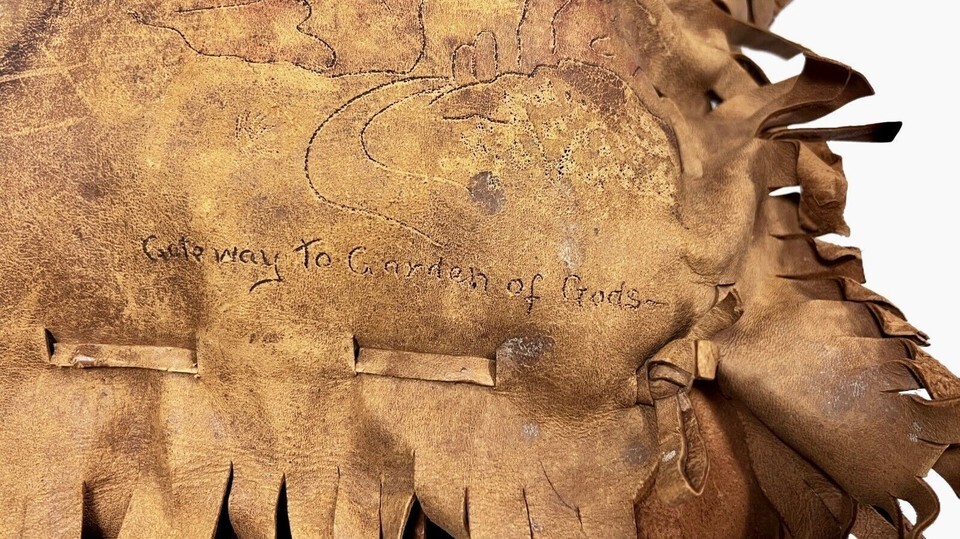 Gateway To Garden of Gods